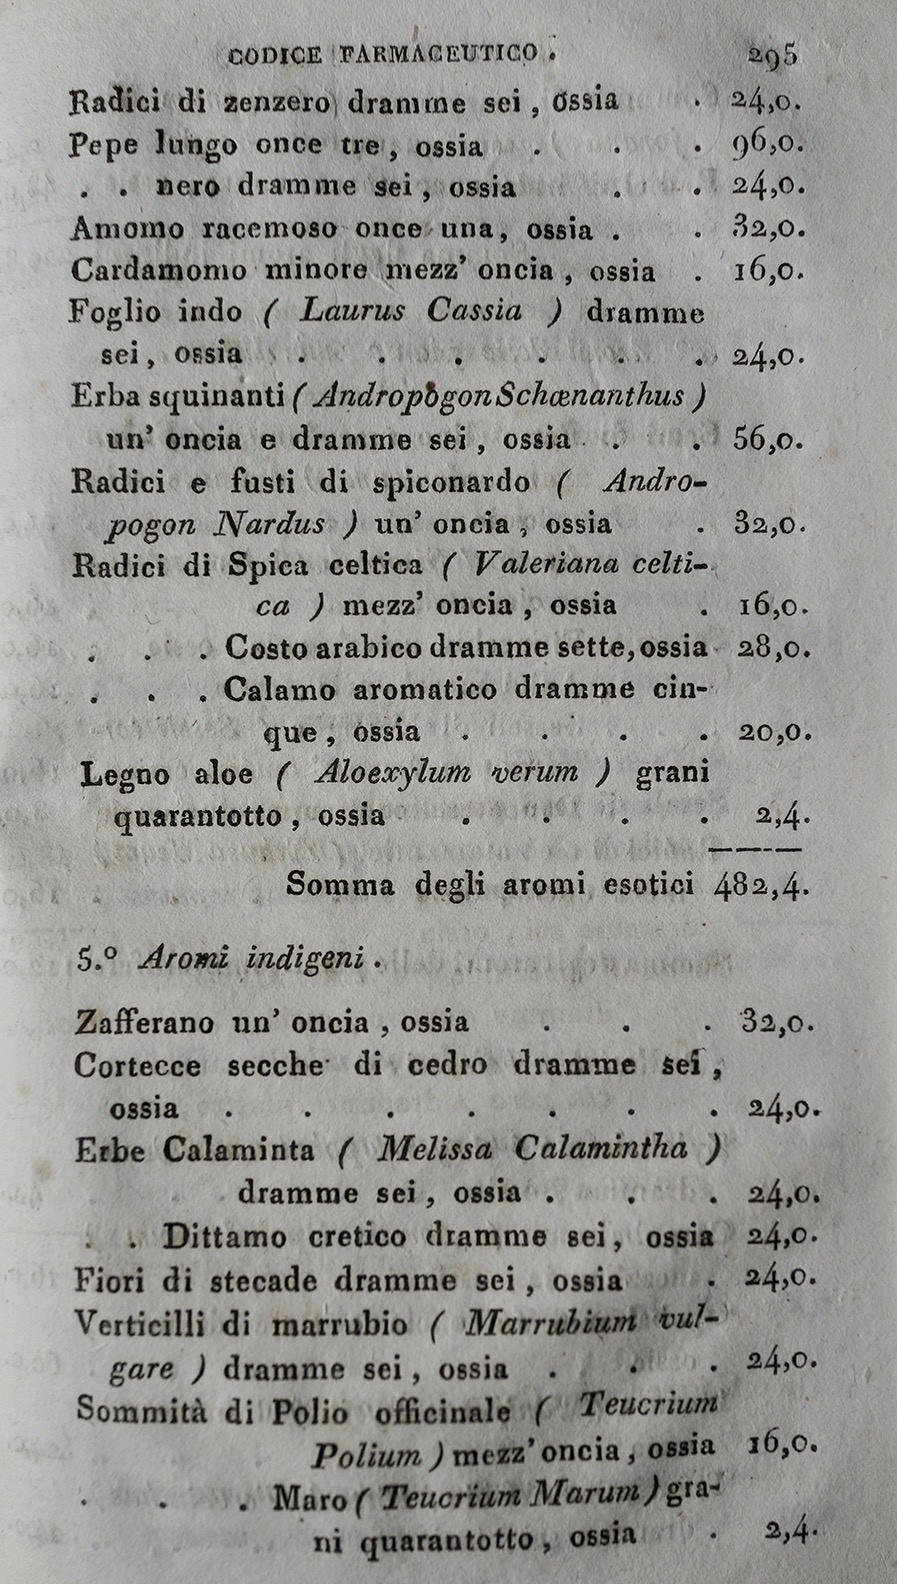 CODICE FARMACEUTICO. 295
Radici di zenzero dramme sei, ossia . 24,0.
Pepe lungo once tre, ossia . . . 96,0.
. . nero dramme sei, ossia . . 24,0.
Amomo racemoso once una, ossia . . 32,0.
Cardamomo minore mezz' oncia, ossia . 16,0.
Foglio indo ( Laurus Cassia ) dramme
sei, ossia . . . . . . 24,0.
Erba squinanti ( Andropogon Schœnanthus )
un' oncia e dramme sei, ossia . . 56,0.
Radici e fusti di spiconardo ( Andro-
pogon Nardus ) un' oncia, ossia . 32,0.
Radici di Spica celtica ( Valeriana celti-
ca ) mezz' oncia, ossia . 16,0.
. . . Costo arabico dramme sette, ossia 28,0.
. . . Calamo aromatico dramme cin-
que, ossia . . . . 20,0.
Legno aloe ( Aloexylum verum ) grani
quarantotto, ossia . . . . 2,4.
Somma degli aromi esotici 482,4.
5.º Aromi indigeni.
Zafferano un' oncia, ossia . . . 32,0.
Cortecce secche di cedro dramme sei,
ossia . . . . . . . 24,0.
Erbe Calaminta ( Melissa Calamintha )
dramme sei, ossia . . . 24,0.
. . Dittamo cretico dramme sei, ossia 24,0.
Fiori di stecade dramme sei, ossia . 24,0.
Verticilli di marrubio ( Marrubium vul-
gare ) dramme sei, ossia . . . 24,0.
Sommità di Polio officinale ( Teucrium
Polium ) mezz' oncia, ossia 16,0.
. . . Maro ( Teucrium Marum ) gra-
ni quarantotto, ossia . 2,4.